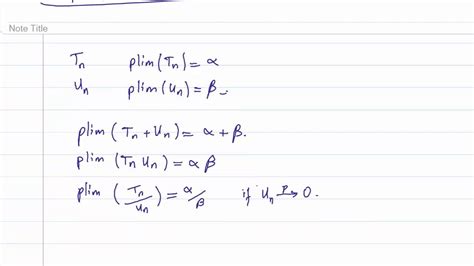 Note Title
Tn plim (Tn) = α
Un plim (Un) = β
plim (Tn + Un) = α + β.
plim (Tn Un) = α β
plim (Tn/Un) = α/β if Un →p 0.